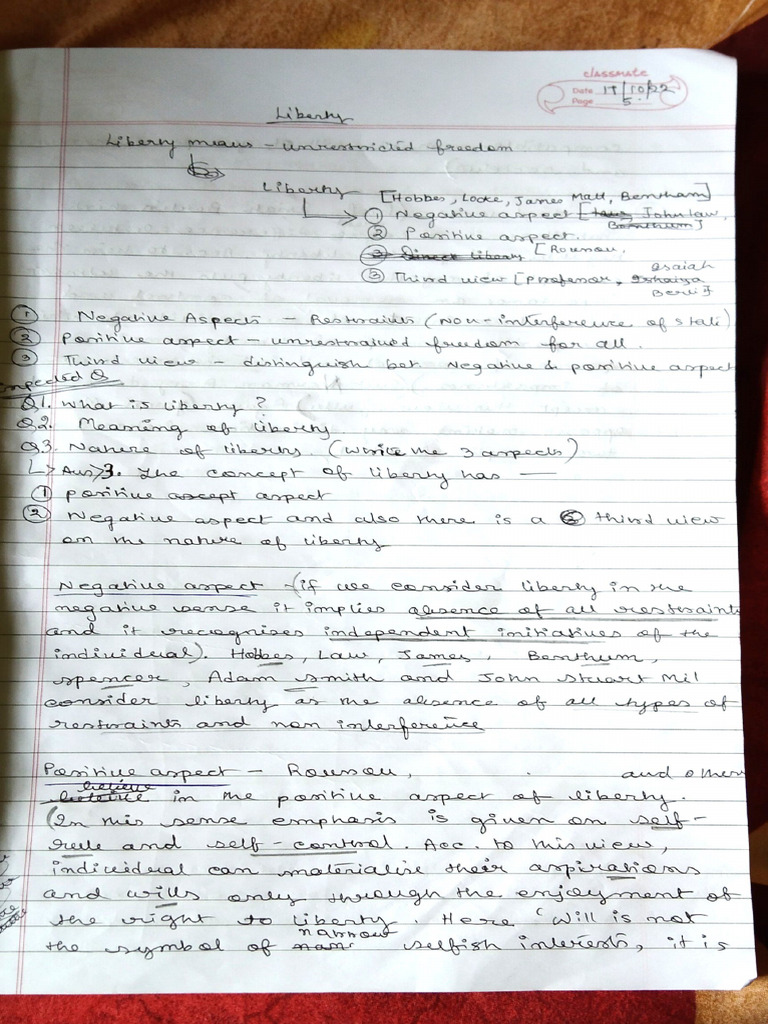 classmate
Date 17/10/22
Page 5.
Liberty
Liberty means - unrestricted freedom
Liberty [Hobbes, Locke, James Matt, Bentham]
① Negative aspect [John law, Benthum]
② Positive aspect.
③ Direct libery [Rousou,
③ Third view [Professor, Isaiah Berli]
① Negative Aspects - Restraints (Non-interference of state)
② Positive aspect - unrestrained freedom for all.
③ Third view - distinguish bet Negative & positive aspect
Q1. What is liberty ?
Q.2. Meaning of liberty
Q.3. Nature of liberty. (write the 3 aspects)
↳ Ans→3. The concept of liberty has —
① positive ascept aspect
② Negative aspect and also there is a third view
on the nature of liberty
Negative aspect - (if we consider liberty in the
negative sense it implies absence of all restraints
and it recognises independent initiatives of the
individual). Hobbes, Law, James, Benthum,
spencer, Adam smith and John Stuart Mil
consider liberty as the absence of all types of
restraints and non interference
Positive aspect - Rousou, . and others
believe in the positive aspect of liberty.
(In this sense emphasis is given on self-
rule and self-control. Acc. to this view,
individual can materialise their aspirations
and wills only through the enjoyment of
the right to liberty. Here 'Will is not
the symbol of narrow selfish interests, it is